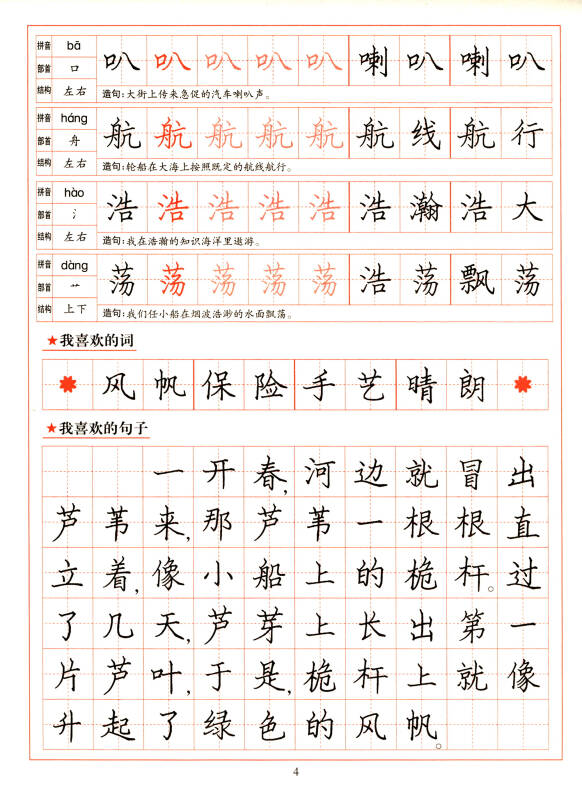 拼音 bā 叭 叭 叭 叭 叭 喇 叭 喇 叭
部首 口
结构 左右 造句：大街上传来急促的汽车喇叭声。
拼音 háng 航 航 航 航 航 航 线 航 行
部首 舟
结构 左右 造句：轮船在大海上按照既定的航线航行。
拼音 hào 浩 浩 浩 浩 浩 浩 瀚 浩 大
部首 氵
结构 左右 造句：我在浩瀚的知识海洋里遨游。
拼音 dàng 荡 荡 荡 荡 荡 浩 荡 飘 荡
部首 艹
结构 上下 造句：我们任小船在烟波浩渺的水面飘荡。
★我喜欢的词
风 帆 保 险 手 艺 晴 朗
★我喜欢的句子
一开春，河边就冒出
芦苇来，那芦苇一根根直
立着，像小船上的桅杆。过
了几天，芦芽上长出第一
片芦叶，于是，桅杆上就像
升起了绿色的风帆。
4